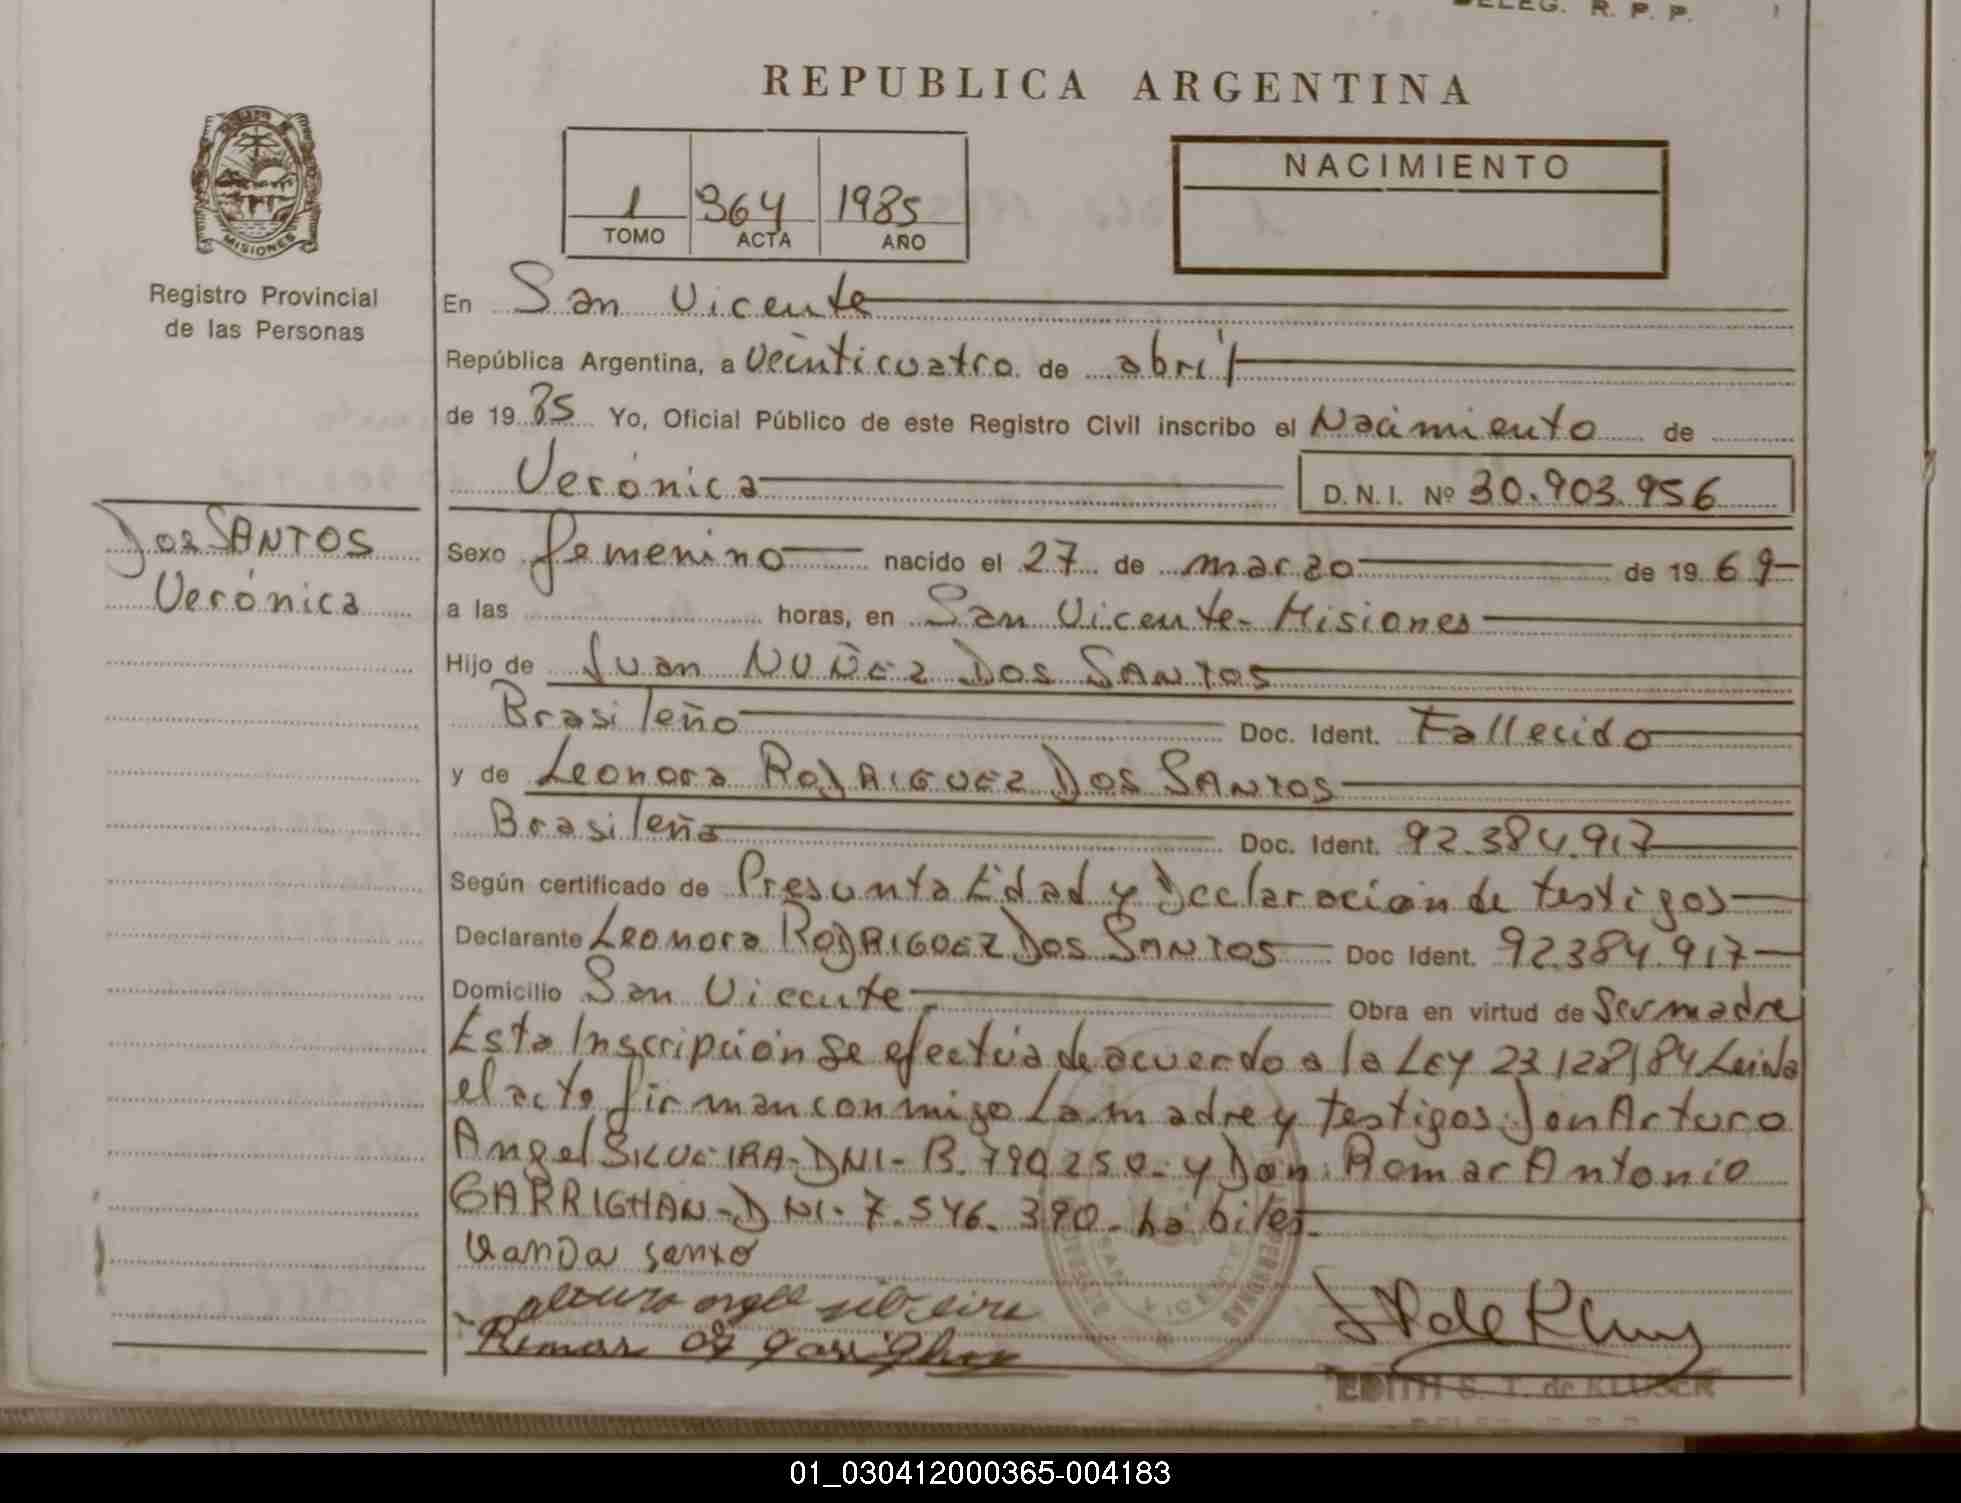 DELEG. R. P. P.
REPUBLICA ARGENTINA
NACIMIENTO
1 364 1985
TOMO ACTA AÑO
MISIONES
Registro Provincial
de las Personas
En San Vicente
República Argentina, a veinticuatro de abril
de 19 85 Yo, Oficial Público de este Registro Civil inscribo el Nacimiento de
Verónica D.N.I. Nº 30.903.956
Dos SANTOS
Verónica
Sexo femenino nacido el 27 de marzo de 19 69
a las horas, en San Vicente - Misiones
Hijo de Juan NUÑEZ DOS SANTOS
Brasileño Doc. Ident. Fallecido
y de Leonora RODRIGUEZ DOS SANTOS
Brasileña Doc. Ident. 92.384.917
Según certificado de Presunta Edad y Declaración de testigos
Declarante Leonora RODRIGUEZ DOS SANTOS Doc Ident. 92.384.917
Domicilio San Vicente Obra en virtud de Ser madre
Esta Inscripción se efectúa de acuerdo a la LEY 23128/84 Leida
el acto firman conmigo la madre y testigos: Don Arturo
Angel SILVEIRA - DNI - 8.790.250 - y Don: Romar Antonio
GARRIGHAN - DNI - 7.546.390 - hábiles.
Vanda Santo
EDITH S. T. de KLUSER
01_030412000365-004183